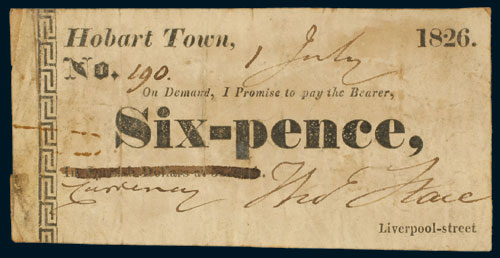 Hobart Town, 1 July 1826.
No. 190.
On Demand, I Promise to pay the Bearer,
Six-pence,
Dollars at
Currency Thos
Liverpool-street